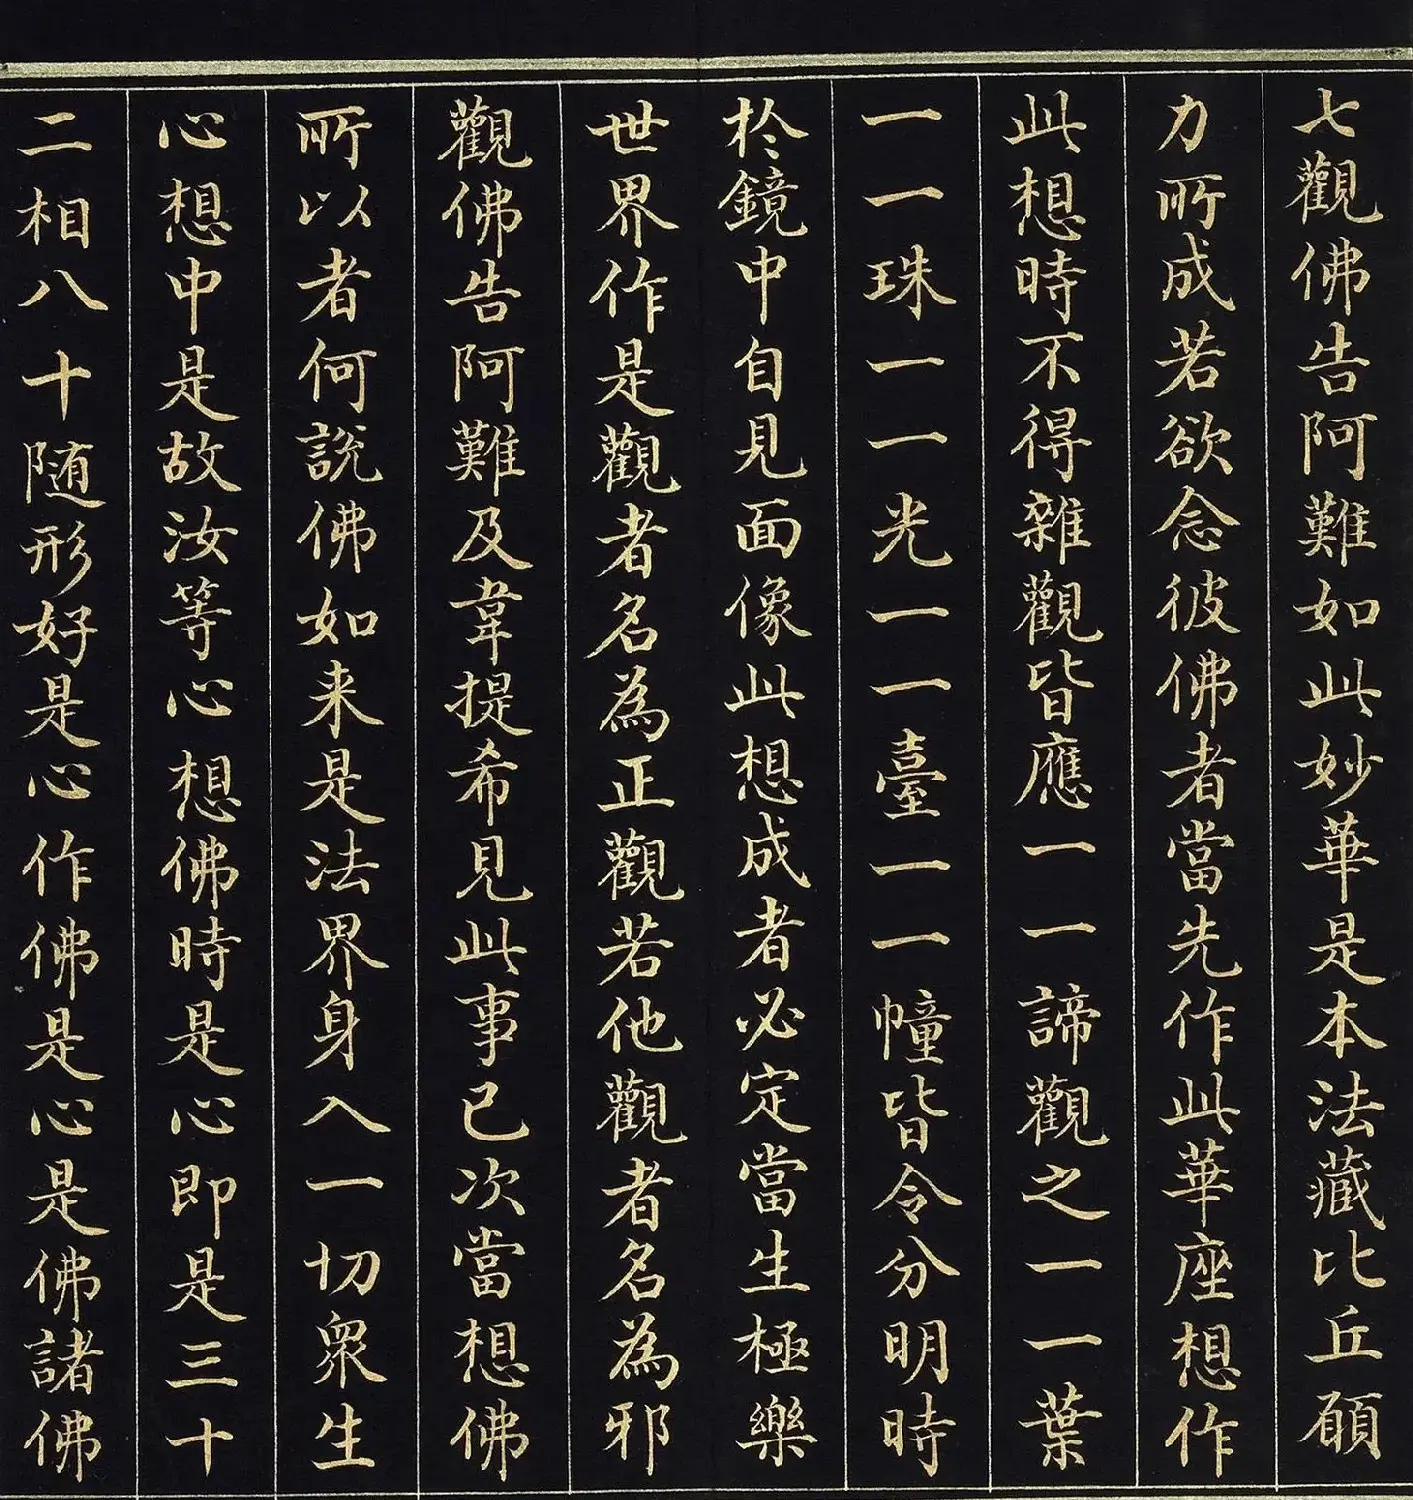 七觀佛告阿難如此妙華是本法藏比丘願
力所成若欲念彼佛者當先作此華座想作
此想時不得雜觀皆應一一諦觀之一一葉
一一珠一一光一一臺一一幢皆令分明時
於鏡中自見面像此想成者必定當生極樂
世界作是觀者名為正觀若他觀者名為邪
觀佛告阿難及韋提希見此事已次當想佛
所以者何說佛如来是法界身入一切衆生
心想中是故汝等心想佛時是心即是三十
二相八十随形好是心作佛是心是佛諸佛